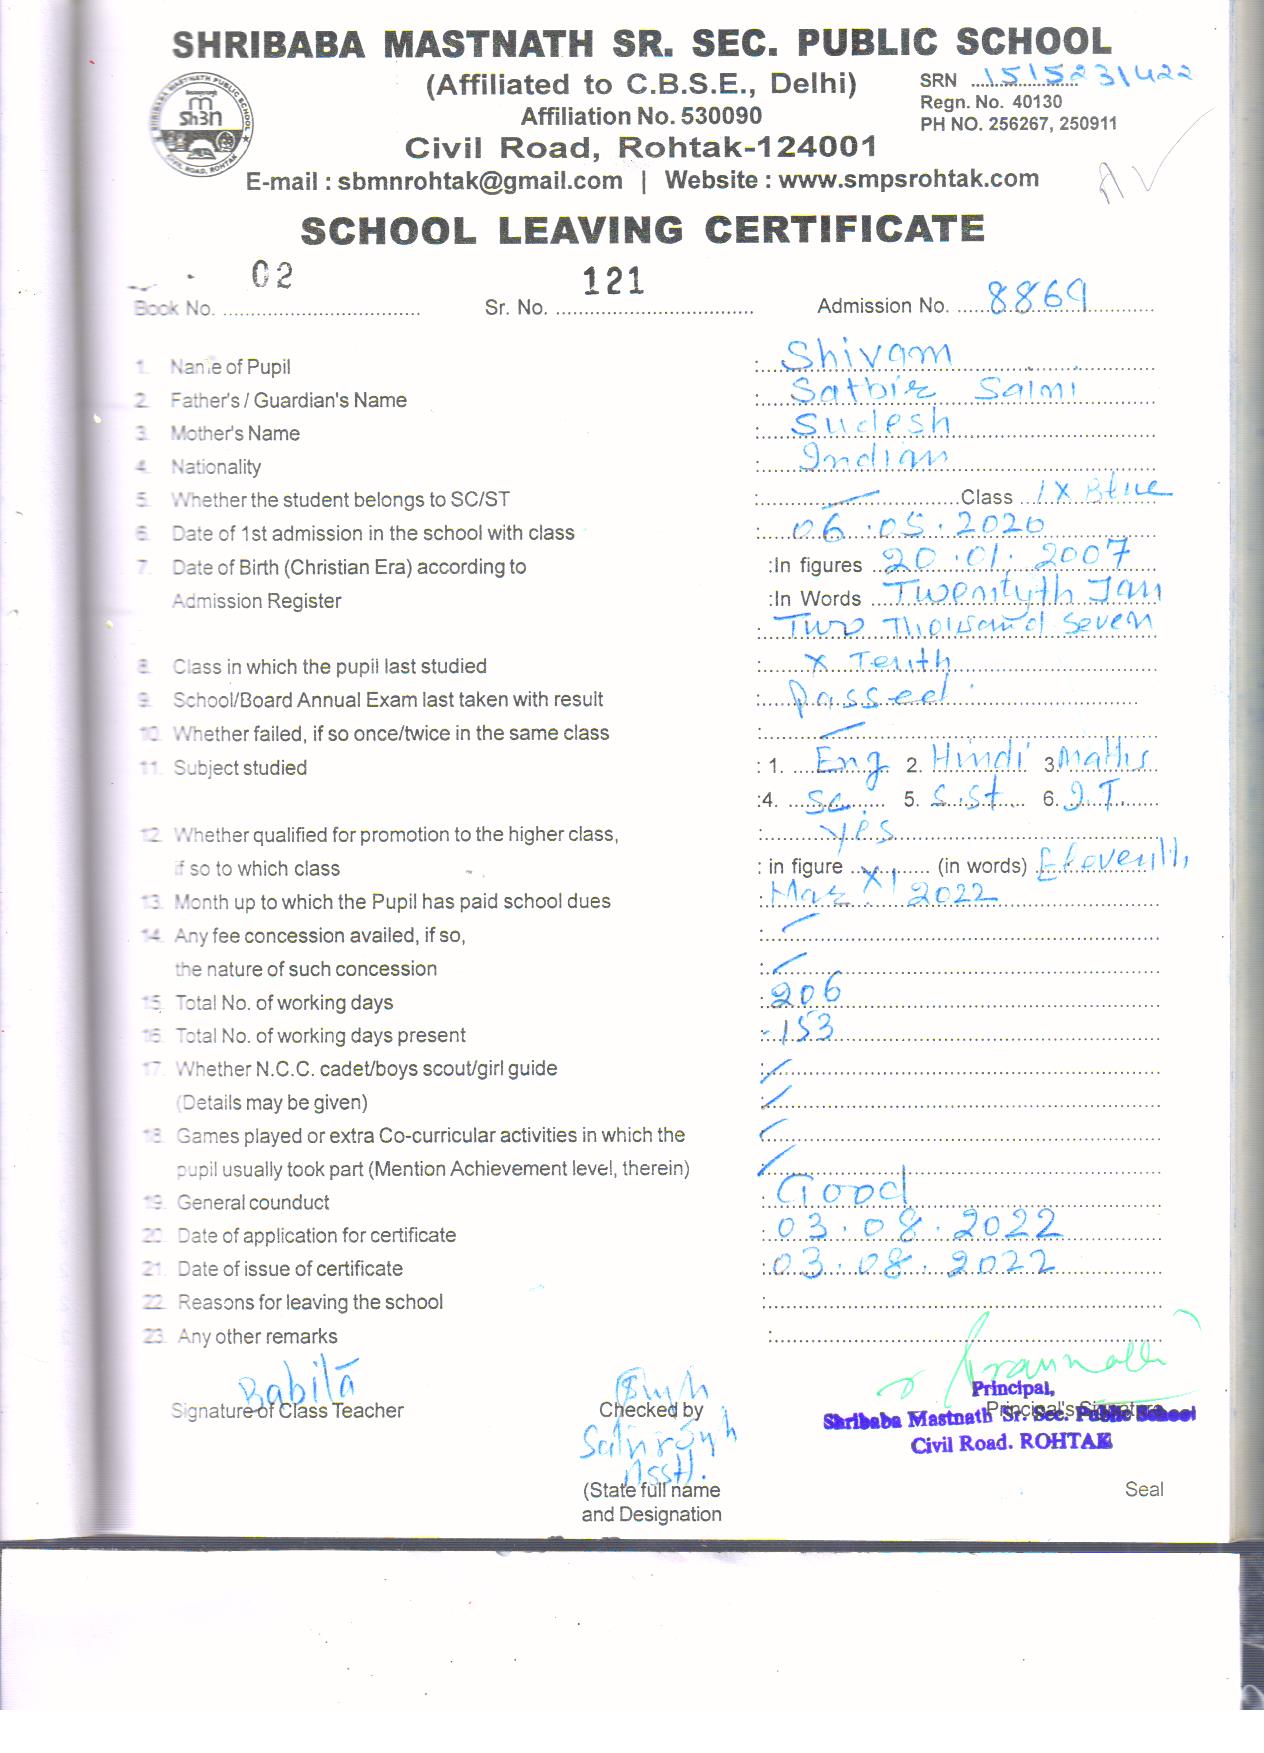 SHRIBABA MASTNATH SR. SEC. PUBLIC SCHOOL
(Affiliated to C.B.S.E., Delhi)
SRN 1515231422
Affiliation No. 530090
Regn. No. 40130
PH NO. 256267, 250911
Civil Road, Rohtak-124001
E-mail : sbmnrohtak@gmail.com | Website : www.smpsrohtak.com
SCHOOL LEAVING CERTIFICATE
Book No. 02 Sr. No. 121 Admission No. 8869
1. Name of Pupil : Shivam
2. Father's / Guardian's Name : Satbir Saini
3. Mother's Name : Sudesh
4. Nationality : Indian
5. Whether the student belongs to SC/ST : — Class IX Blue
6. Date of 1st admission in the school with class : 06.05.2020
7. Date of Birth (Christian Era) according to :In figures 20.01.2007
Admission Register :In Words Twentyth Jan
: Two Thousand Seven
8. Class in which the pupil last studied : X Tenth
9. School/Board Annual Exam last taken with result : Passed
10. Whether failed, if so once/twice in the same class : —
11. Subject studied : 1. Eng 2. Hindi 3. Maths
:4. Sc. 5. S.St 6. I.T.
12. Whether qualified for promotion to the higher class, : Yes
if so to which class : in figure XI (in words) Eleventh
13. Month up to which the Pupil has paid school dues : Mar 2022
14. Any fee concession availed, if so, : —
the nature of such concession : —
15. Total No. of working days : 206
16. Total No. of working days present : 153
17. Whether N.C.C. cadet/boys scout/girl guide : —
(Details may be given) : —
18. Games played or extra Co-curricular activities in which the : —
pupil usually took part (Mention Achievement level, therein) : —
19. General counduct : Good
20. Date of application for certificate : 03.08.2022
21. Date of issue of certificate : 03.08.2022
22. Reasons for leaving the school :
23. Any other remarks :
Babita
Signature of Class Teacher
Checked by
Asstt.
(State full name
and Designation
Principal,
Principal's Signature
Shribaba Mastnath Sr. Sec. Public School
Civil Road. ROHTAK
Seal